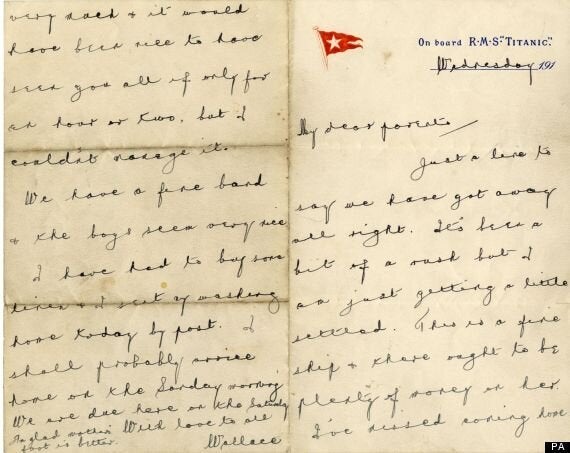 On board R·M·S "TITANIC."
Wednesday 191
My dear parents
Just a line to
say we have got away
all right. It's been a
bit of a rush but I
am just getting a little
settled. This is a fine
ship & there ought to be
plenty of money on her.
I've missed coming home
very much & it would
have been nice to have
seen you all if only for
an hour or two, but I
couldn't manage it.
We have a fine band
& the boys seem very nice
I have had to buy some
linen & I sent my washing
home today by post. I
shall probably arrive
home on the Sunday morning
We are due here on the Saturday
I'm glad mother's With love to all
foot is better. Wallace
PA